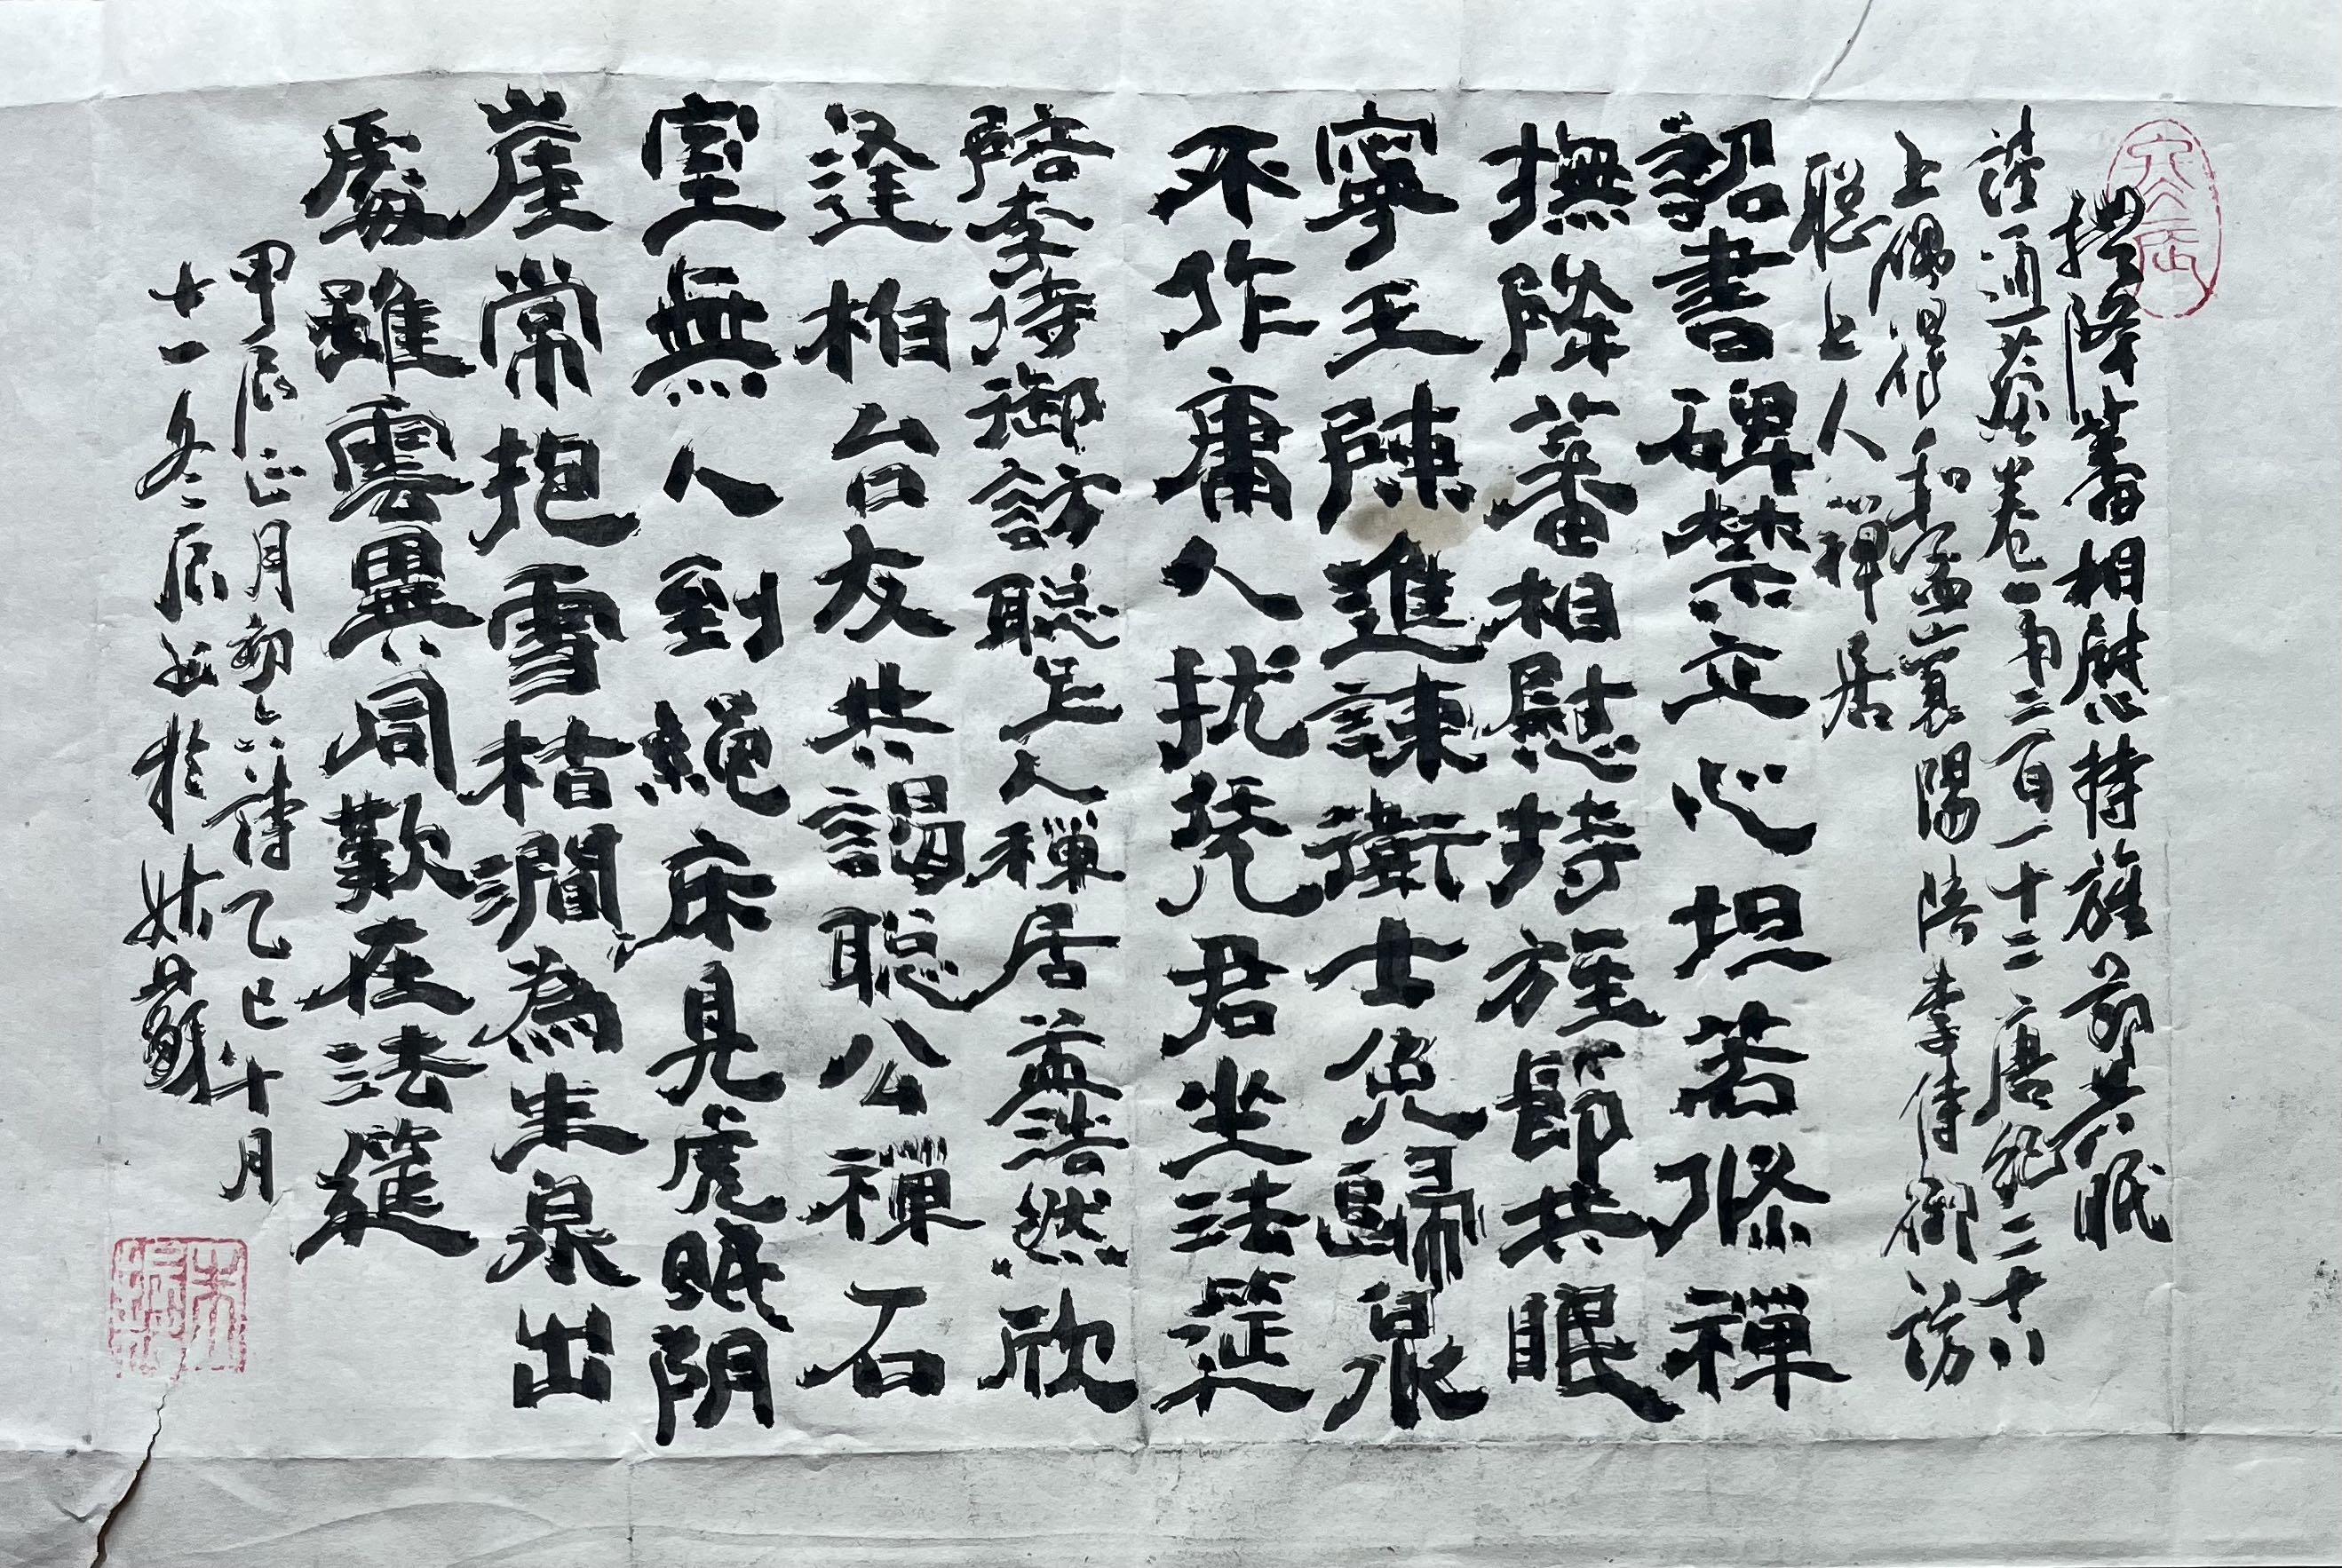 撫降蕃相慰持旌節共眠
讀通鑑卷第二百一十二唐紀二十八
上偶得和孟襄陽陪李侍御訪
聪上人禅居
詔書碑禁立心坦若際禪
撫降蕃相慰持旌節共眠
寧王陳進諫衛士免歸泉
不作庸人扰凳君坐法筵
陪李侍御訪聪上人禪居孟浩然欣
逢柏台友共謁聪公禪石
室無人到繩床見虎眠阴
崖常抱雪桔澗為生泉出
處雖雲異同歡在法筵
甲辰正月初六诗乙巳十月
十一冬辰书於姑蘇